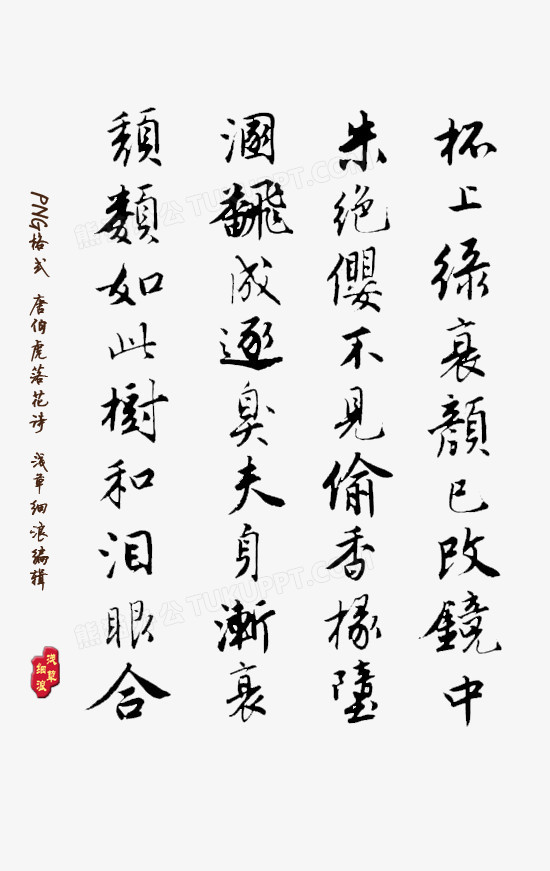 杯上緑衰顏已改鏡中
朱絶纓不見偷香掾墮
溷飜成逐臭夫身漸衰
頽類如此樹和泪眼合
PNG格式 唐伯虎落花诗 浅草细浪编辑
浅草
细浪
熊猫办公 TUKUPPT.COM
熊猫办公 TUKUPPT.COM